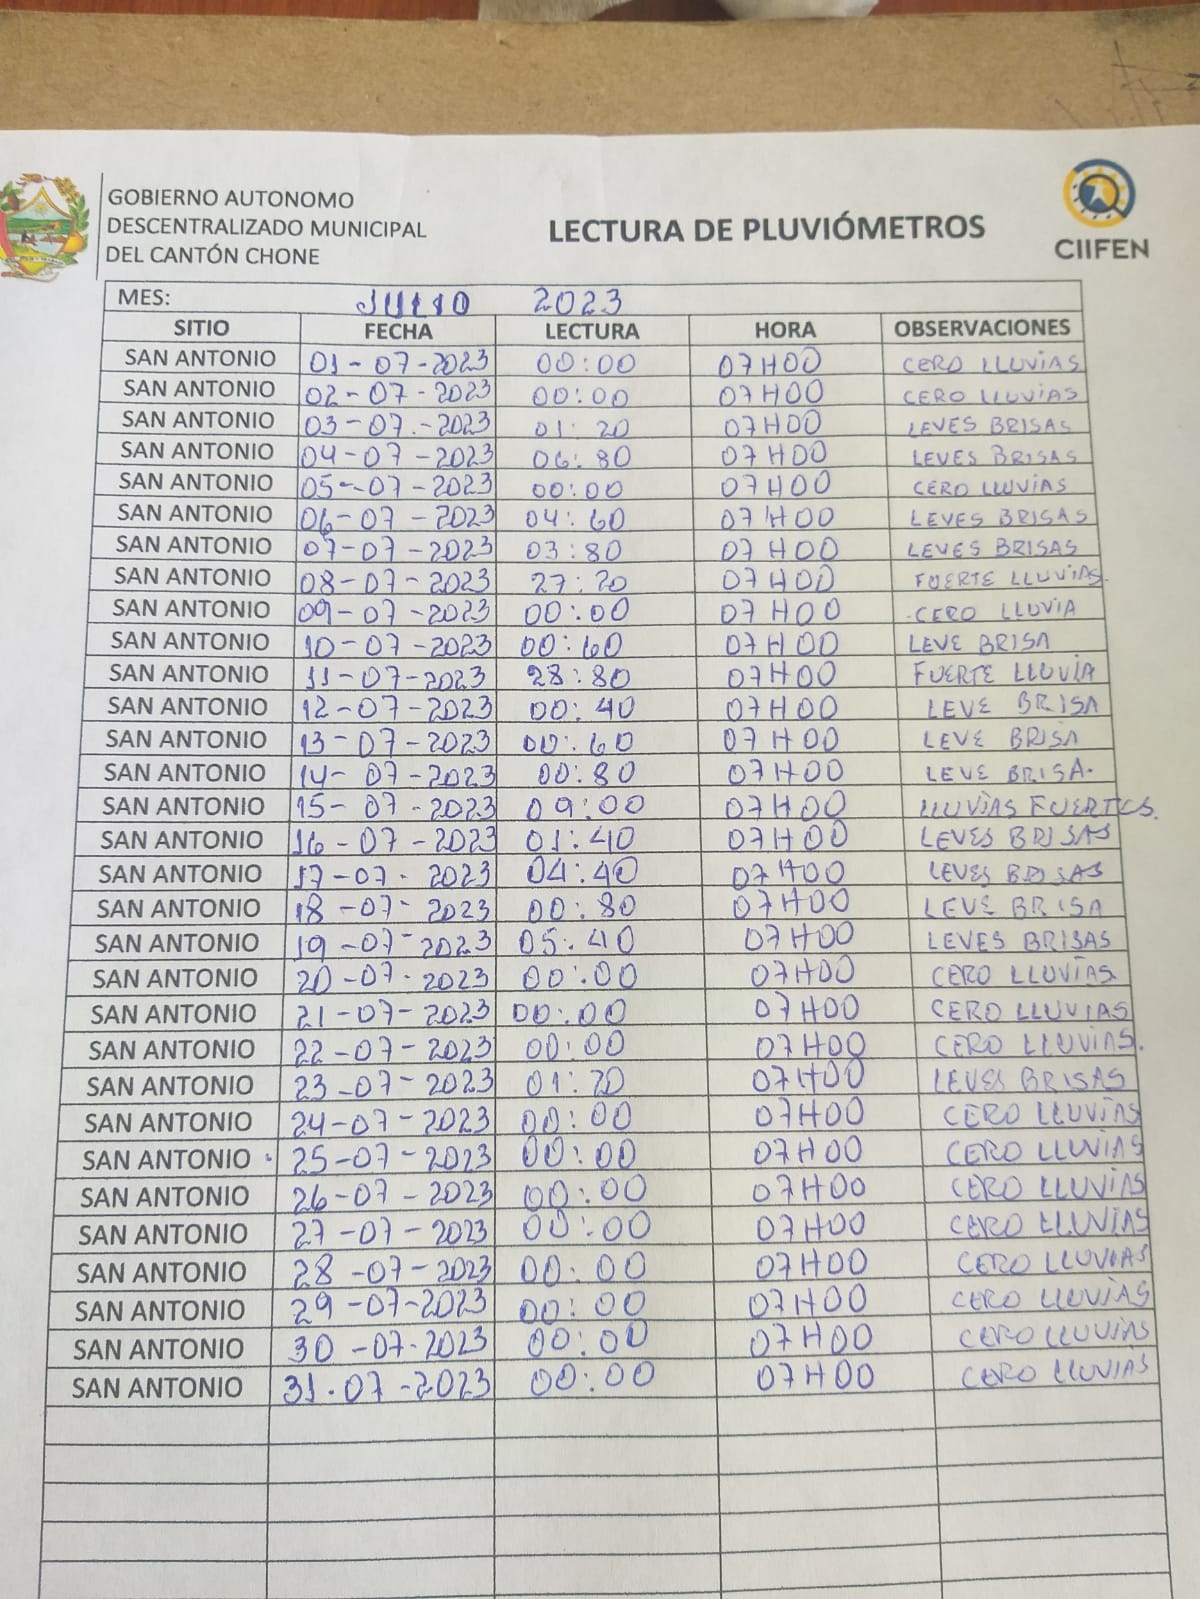 GOBIERNO AUTONOMO
DESCENTRALIZADO MUNICIPAL
DEL CANTÓN CHONE
LECTURA DE PLUVIÓMETROS
CIIFEN
MES: JULIO 2023
SITIO FECHA LECTURA HORA OBSERVACIONES
SAN ANTONIO 01-07-2023 00:00 07H00 CERO LLUVIAS
SAN ANTONIO 02-07-2023 00:00 07H00 CERO LLUVIAS
SAN ANTONIO 03-07-2023 01:20 07H00 LEVES BRISAS
SAN ANTONIO 04-07-2023 06:80 07H00 LEVES BRISAS
SAN ANTONIO 05-07-2023 00:00 07H00 CERO LLUVIAS
SAN ANTONIO 06-07-2023 04:60 07H00 LEVES BRISAS
SAN ANTONIO 07-07-2023 03:80 07H00 LEVES BRISAS
SAN ANTONIO 08-07-2023 27:20 07H00 FUERTE LLUVIAS.
SAN ANTONIO 09-07-2023 00:00 07H00 CERO LLUVIA
SAN ANTONIO 10-07-2023 00:60 07H00 LEVE BRISA
SAN ANTONIO 11-07-2023 28:80 07H00 FUERTE LLUVIA
SAN ANTONIO 12-07-2023 00:40 07H00 LEVE BRISA
SAN ANTONIO 13-07-2023 00:60 07H00 LEVE BRISA
SAN ANTONIO 14-07-2023 00:80 07H00 LEVE BRISA.
SAN ANTONIO 15-07-2023 09:00 07H00 LLUVIAS FUERTES.
SAN ANTONIO 16-07-2023 01:40 07H00 LEVES BRISAS
SAN ANTONIO 17-07-2023 04:40 07H00 LEVES BRISAS
SAN ANTONIO 18-07-2023 00:80 07H00 LEVE BRISA
SAN ANTONIO 19-07-2023 05:40 07H00 LEVES BRISAS
SAN ANTONIO 20-07-2023 00:00 07H00 CERO LLUVIAS
SAN ANTONIO 21-07-2023 00:00 07H00 CERO LLUVIAS
SAN ANTONIO 22-07-2023 00:00 07H00 CERO LLUVIAS.
SAN ANTONIO 23-07-2023 01:20 07H00 LEVES BRISAS
SAN ANTONIO 24-07-2023 00:00 07H00 CERO LLUVIAS
SAN ANTONIO 25-07-2023 00:00 07H00 CERO LLUVIAS
SAN ANTONIO 26-07-2023 00:00 07H00 CERO LLUVIAS
SAN ANTONIO 27-07-2023 00:00 07H00 CERO LLUVIAS
SAN ANTONIO 28-07-2023 00:00 07H00 CERO LLUVIAS
SAN ANTONIO 29-07-2023 00:00 07H00 CERO LLUVIAS
SAN ANTONIO 30-07-2023 00:00 07H00 CERO LLUVIAS
SAN ANTONIO 31-07-2023 00:00 07H00 CERO LLUVIAS